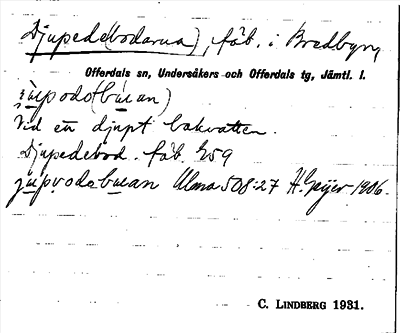 Djupede(bodarna), fäb. i Bredbyn,
Offerdals sn, Undersåkers och Offerdals tg, Jämtl. l.
jupodo(buan)
Vid en djupt bakvatten.
Djupedebod. fäb. G59
jupvodebuan Ulma 508:27 H. Geijer 1906.
C. LINDBERG 1931.